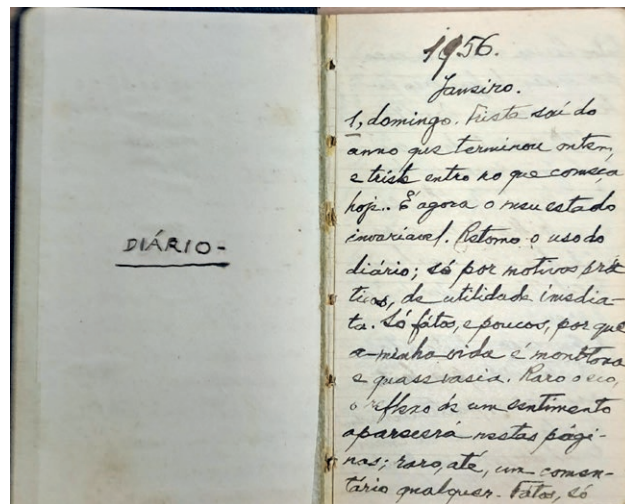 DIÁRIO-
1956.
Janeiro.
1, domingo. Triste saí do
anno que terminou ontem,
e triste entro no que começa
hoje. É agora o meu estado
invariavel. Retomo o uso do
diário; só por motivos prá
ticos, de utilidade imedia-
ta. Só fátos, e poucos, por que
a minha vida é monótona
e quasi vasia. Raro o eco,
o reflexo de um sentimento
aparecerá nestas pági-
nas; raro, até, um comen-
tário qualquer. Fatos, só